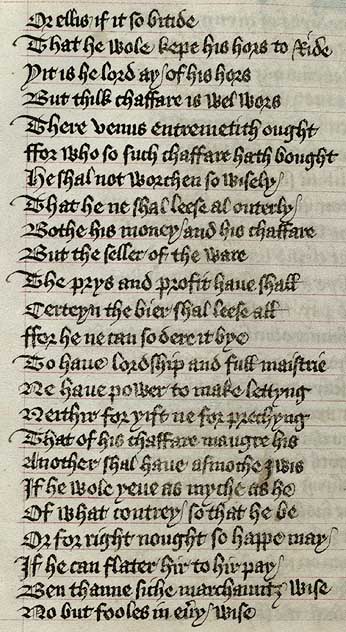 Or ellis if it so bitide
That he wole kepe his hors to Ride
Yit is he lord ay / of his hors
But thilk chaffare is wel wors
There venus entremetith ought
ffor who so such chaffare hath bought
He shal not worchen so wisely /
That he ne shal leese al outerly /
Bothe his money / and his chaffare
But the seller of the ware
The prys and profit haue shall
Certeyn the bier shal leese all
ffor he ne can so dere it bye
To haue lordship and full maistrie
Ne haue power to make lettyng
Neithir for yift ne for prechyng
That of his chaffare maugre his
Another shal haue asmoche Iwis
If he wole yeue as myche as he
Of what contrey / so that he be
Or for right nought so happe may /
If he can flater hir to hir pay /
Ben thanne siche marchauntz wise
No but fooles in eu'y / wise